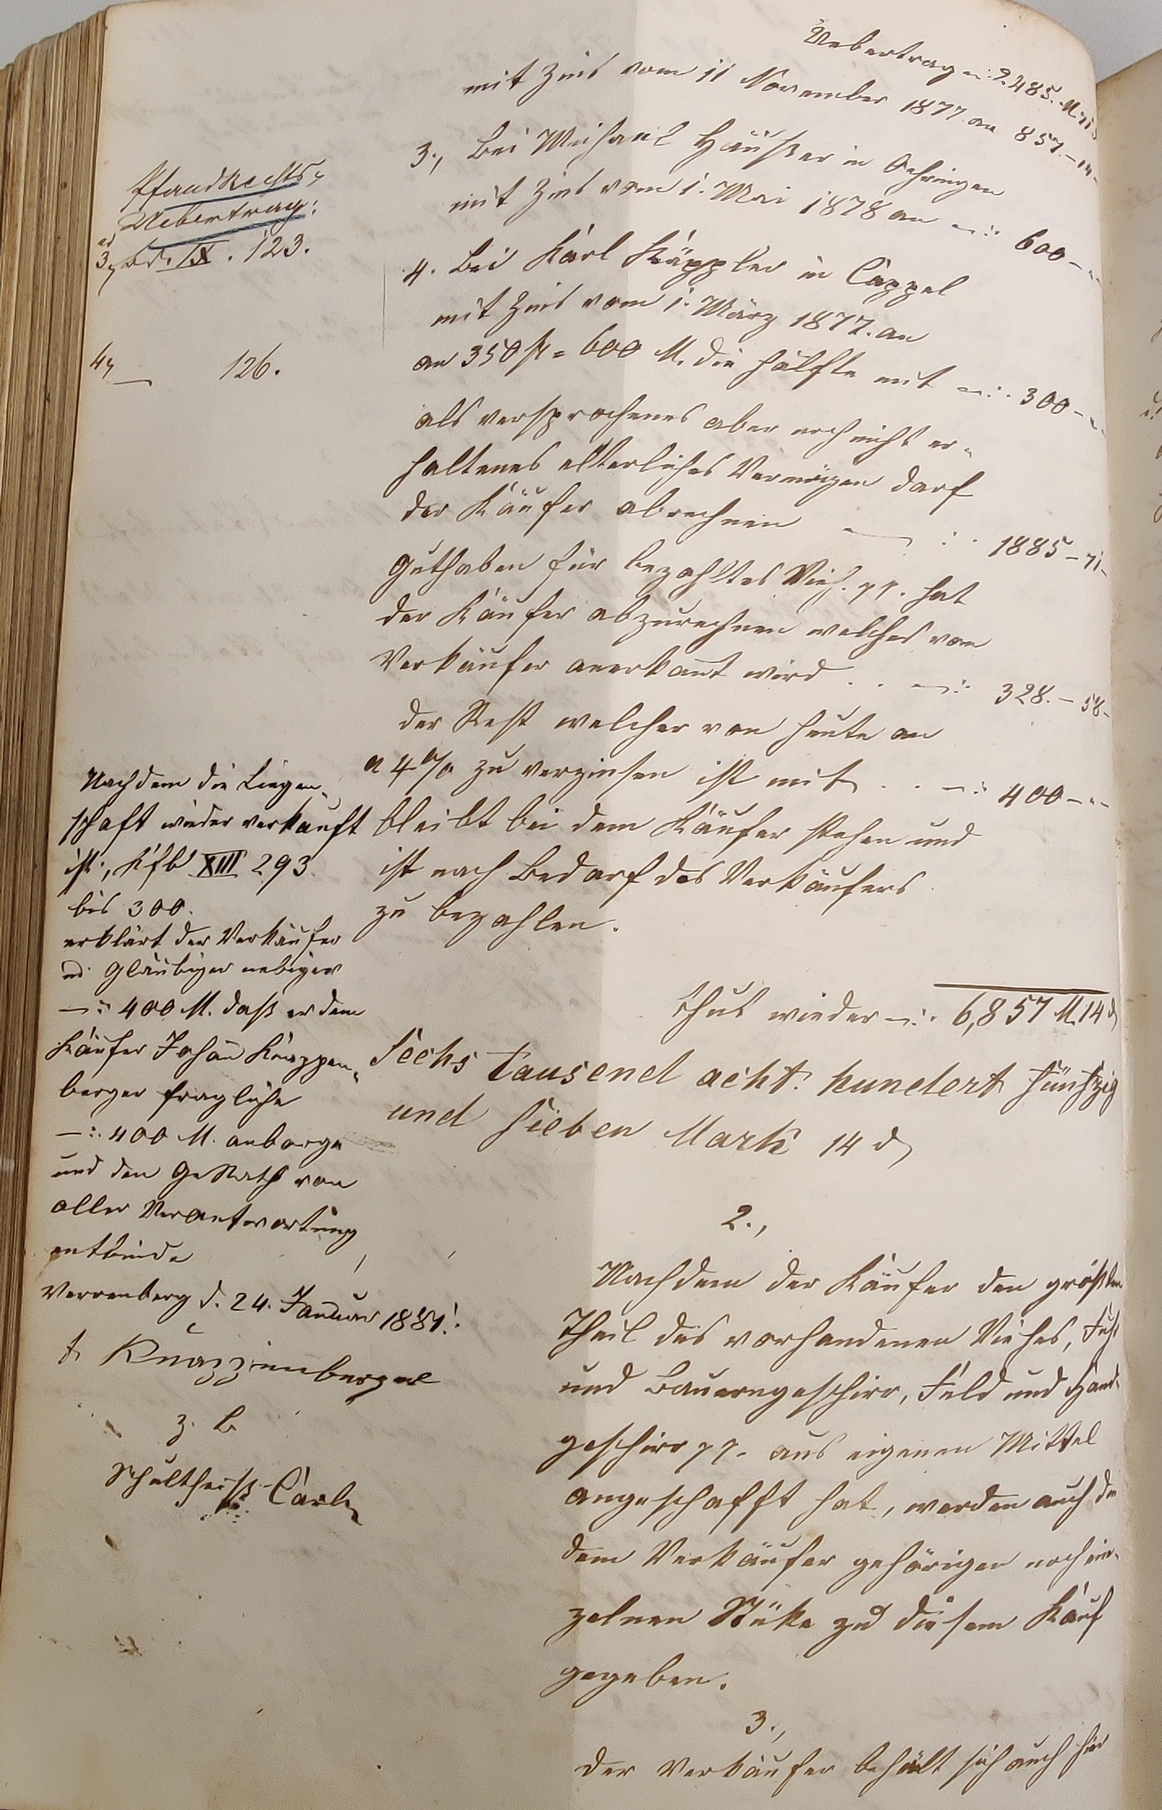 Uebertrag —:. 2,485. M. 71
mit Zins vom 11 November 1877 an 857.—14.
3., bei Michael Häußer in Oehringen
mit Zins vom 1. Mai 1878 an —:. 600 — "
4. bei Karl Käppler in Cappel
mit Zins vom 1. März 1877. an
an 350 fl = 600 M. die Hälfte mit —:. 300 — "
als versprochenes aber noch nicht er-
haltenes elterliches Vermögen darf
der Käufer abrechnen —:. 1885 — 71
Guthaben für bezahltes Vieh. pp. hat
der Käufer abzurechnen welches vom
Verkäufer anerkannt wird . . —:. 328. — 58
der Rest welcher von heute an
a 4% zu verzinsen ist mit . . —:. 400 — "
bleibt bei dem Käufer stehen und
ist nach Bedarf des Verkäufers
zu bezahlen.
thut wieder —:. 6,857 M. 14 d
Sechs tausend acht hundert fünfzig
und sieben Mark 14 d
2.,
Nachdem der Käufer den größten
Theil des vorhandenen Viehes, Fuhr
und Bauerngeschirr, Feld und Hand-
geschirr pp. aus eigenen Mittel
angeschafft hat, werden auch die
dem Verkäufer gehörigen noch ein-
zelnen Stüke zu diesem Kauf
gegeben.
3.,
Der Verkäufer behält sich auch für
Pfandrechts-
Uebertrag:
ad
3., Bd. IX. 123.
4., — 126.
Nachdem die Liegen-
schaft wieder verkauft
ist, Kfb XIII 293.
bis 300.
erklärt der Verkäufer
Gläubiger nebiger
—:. 400 M. daß er dem
Käufer Johan Knappen-
berger fragliche
—:. 400 M. anborge
und den GeRath von
aller Verantwortung
entbinde
Verrenberg d. 24. Januar 1881.
t. Knappenberger
z. B.
Schultheiß Carle